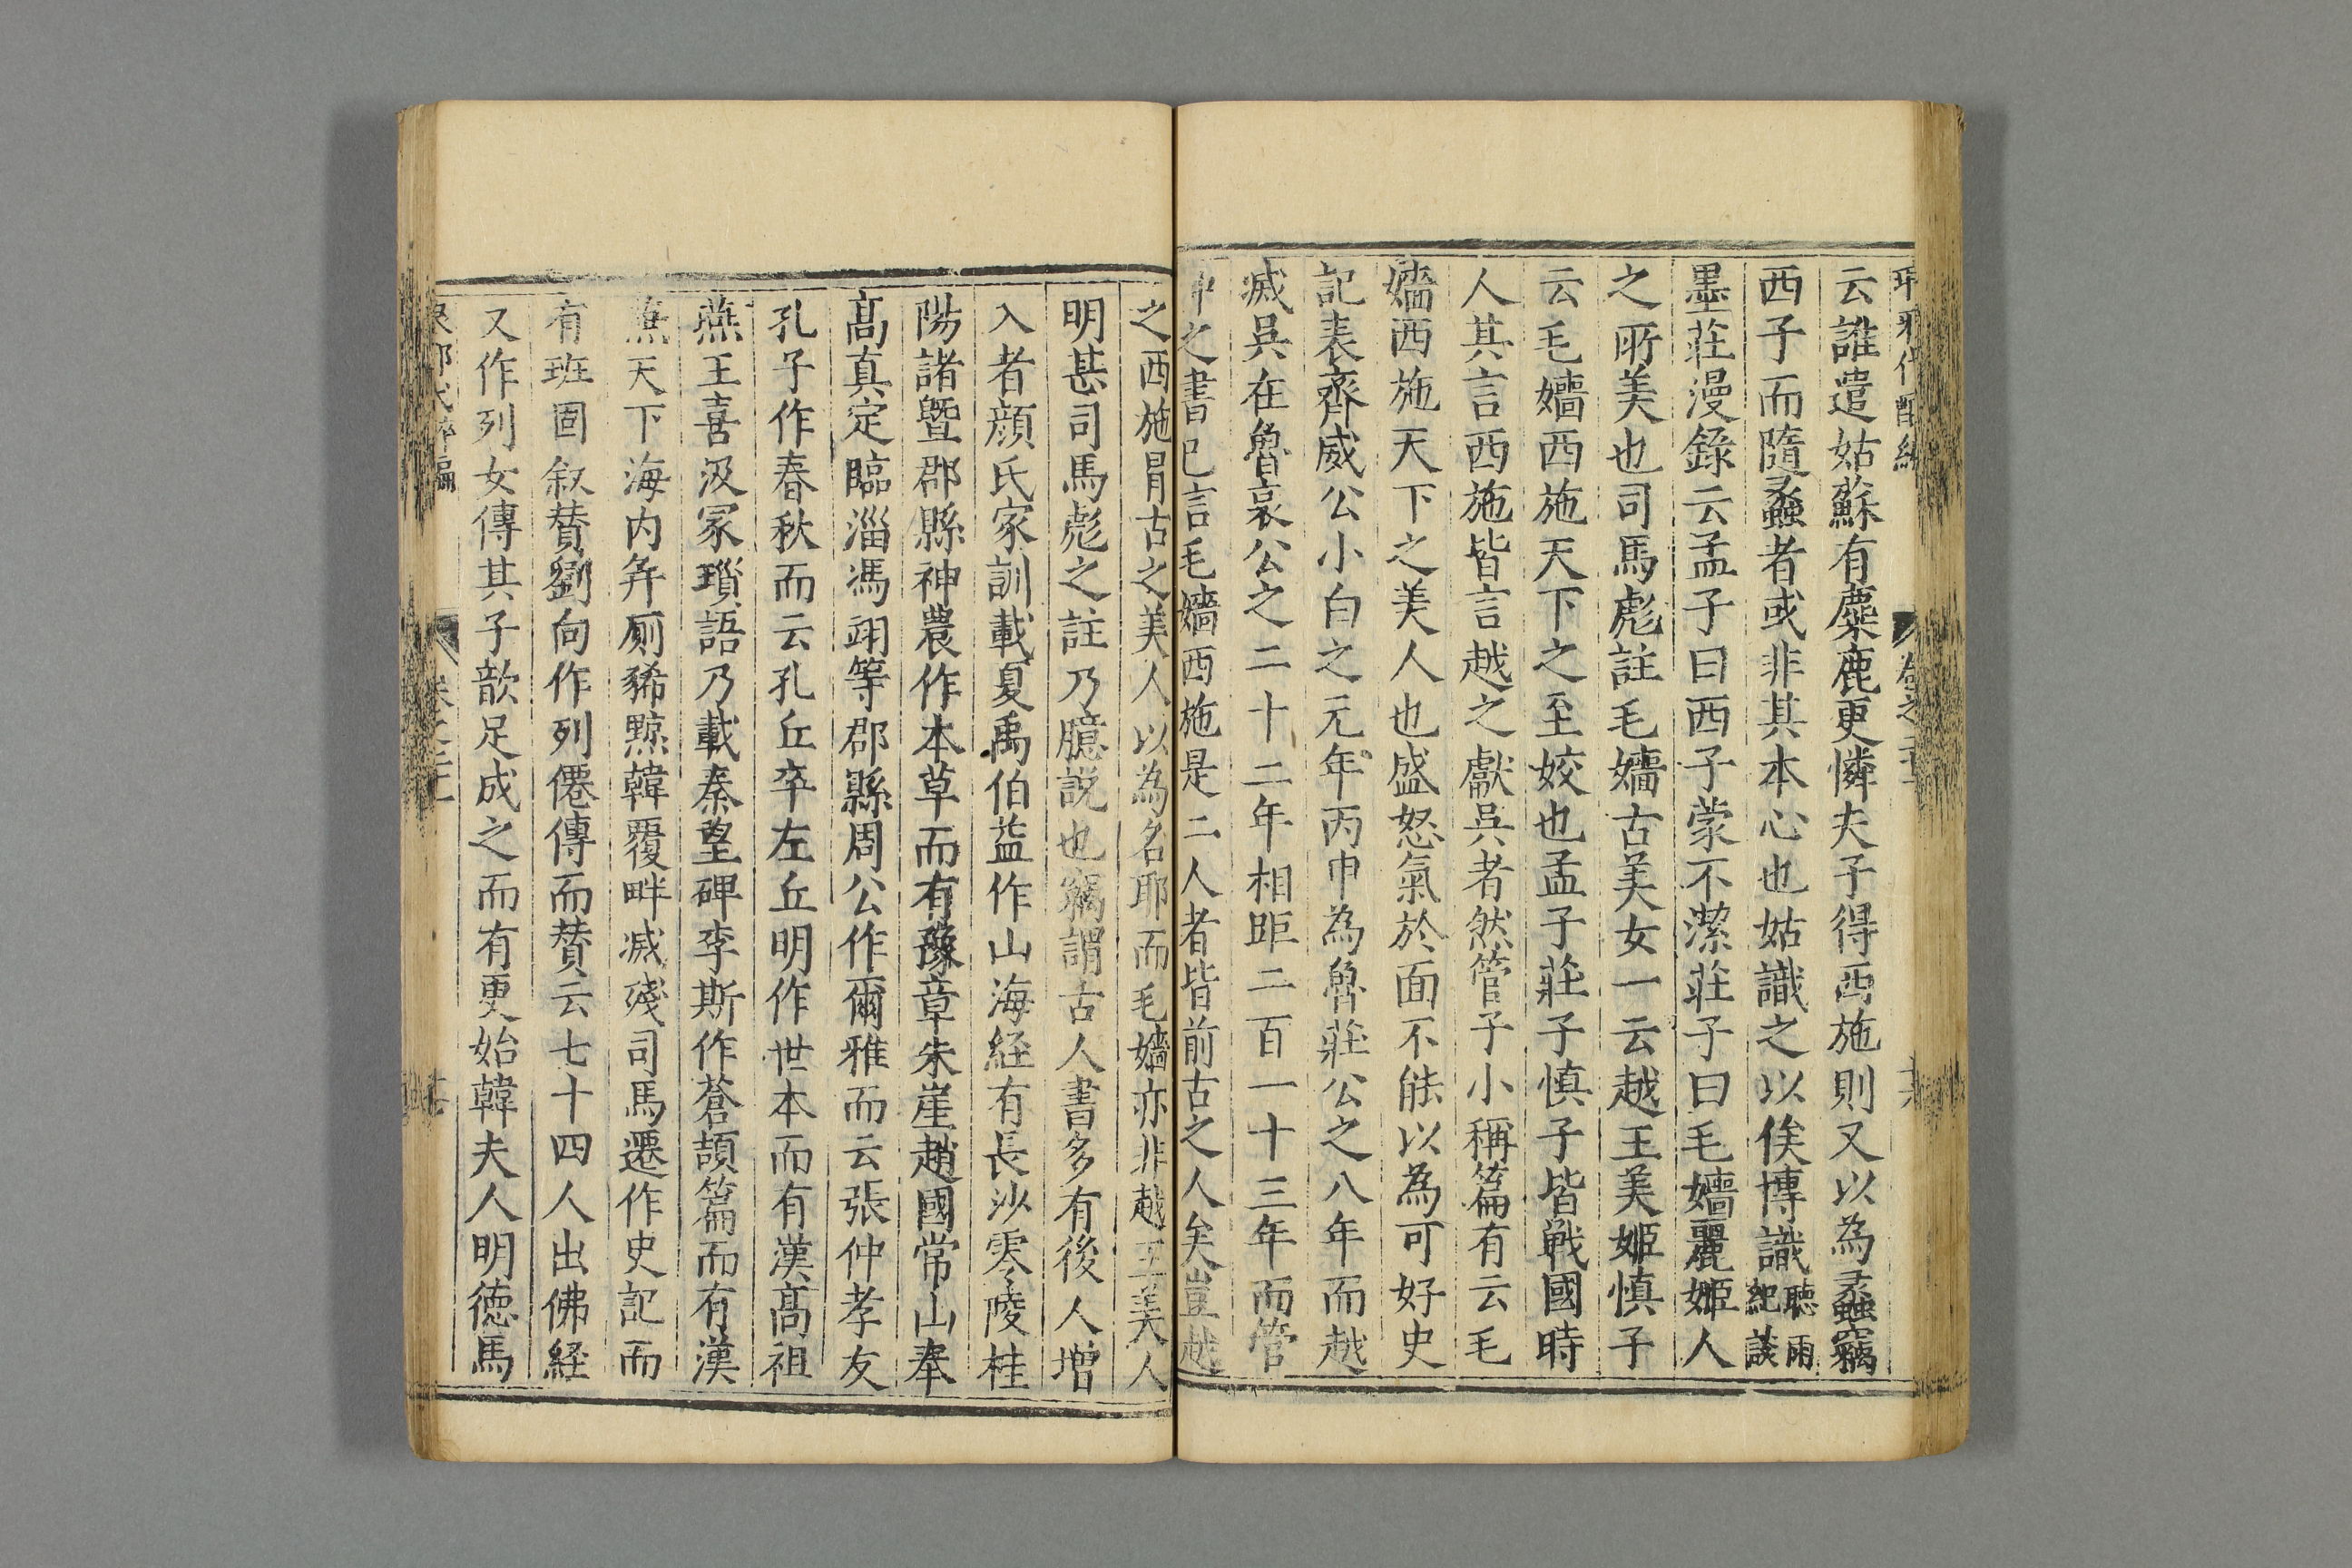 云誰遣姑蘇有麋鹿更憐夫子得西施則又以為蟊竊
西子而隨蟊者或非其本心也姑識之以俟博識聽雨紀談
墨莊漫錄云孟子曰西子蒙不潔莊子曰毛嬙麗姬人
之所美也司馬彪註毛嬙古美女一云越王美姬慎子
云毛嬙西施天下之至姣也孟子莊子慎子皆戰國時
人其言西施皆言越之獻吳者然管子小稱篇有云毛
嬙西施天下之美人也盛怒氣於面不能以為可好史
記表齊威公小白之元年丙申為魯莊公之八年而越
滅吳在魯哀公之二十二年相距二百一十三年而管
仲之書已言毛嬙西施是二人者皆前古之人矣豈越
之西施冒古之美人以為名耶而毛嬙亦非越王美人
明甚司馬彪之註乃臆説也竊謂古人書多有後人增
入者顔氏家訓載夏禹伯益作山海経有長沙零陵桂
陽諸曁郡縣神農作本草而有豫章朱崖趙國常山奉
髙真定臨淄馮翊等郡縣周公作爾雅而云張仲孝友
孔子作春秋而云孔丘卒左丘明作世本而有漢髙祖
燕王喜汲冢瑣語乃載秦望碑李斯作蒼頡篇而有漢
兼天下海内并厠豨黥韓覆畔滅殘司馬遷作史記而
有班固叙賛劉向作列僊傳而賛云七十四人出佛経
又作列女傳其子歆足成之而有更始韓夫人明德馬